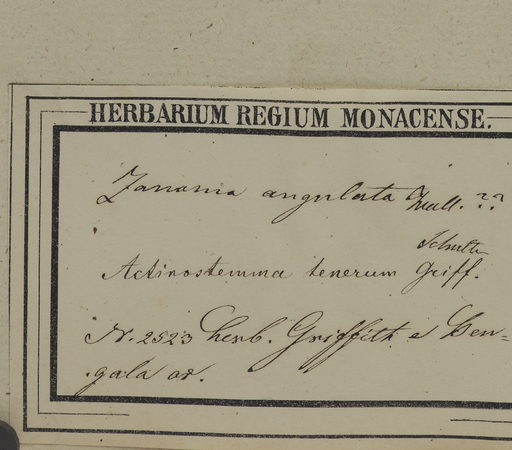 HERBARIUM REGIUM MONACENSE.
Zanonia angulata Wall. ??
Schultz
Actinostemma tenerum Griff.
N. 2523 herb. Griffith e Ben=
gala or.